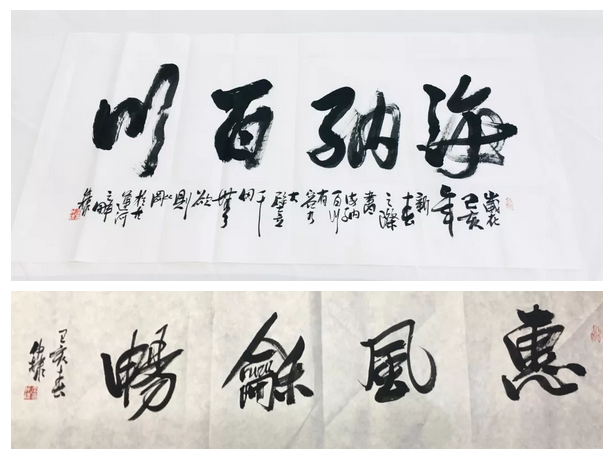 海納百川
歲在己亥年新春之際書海納百川有容乃大壁立千仞無欲則剛於古運河之畔
惠風龢暢
己亥春